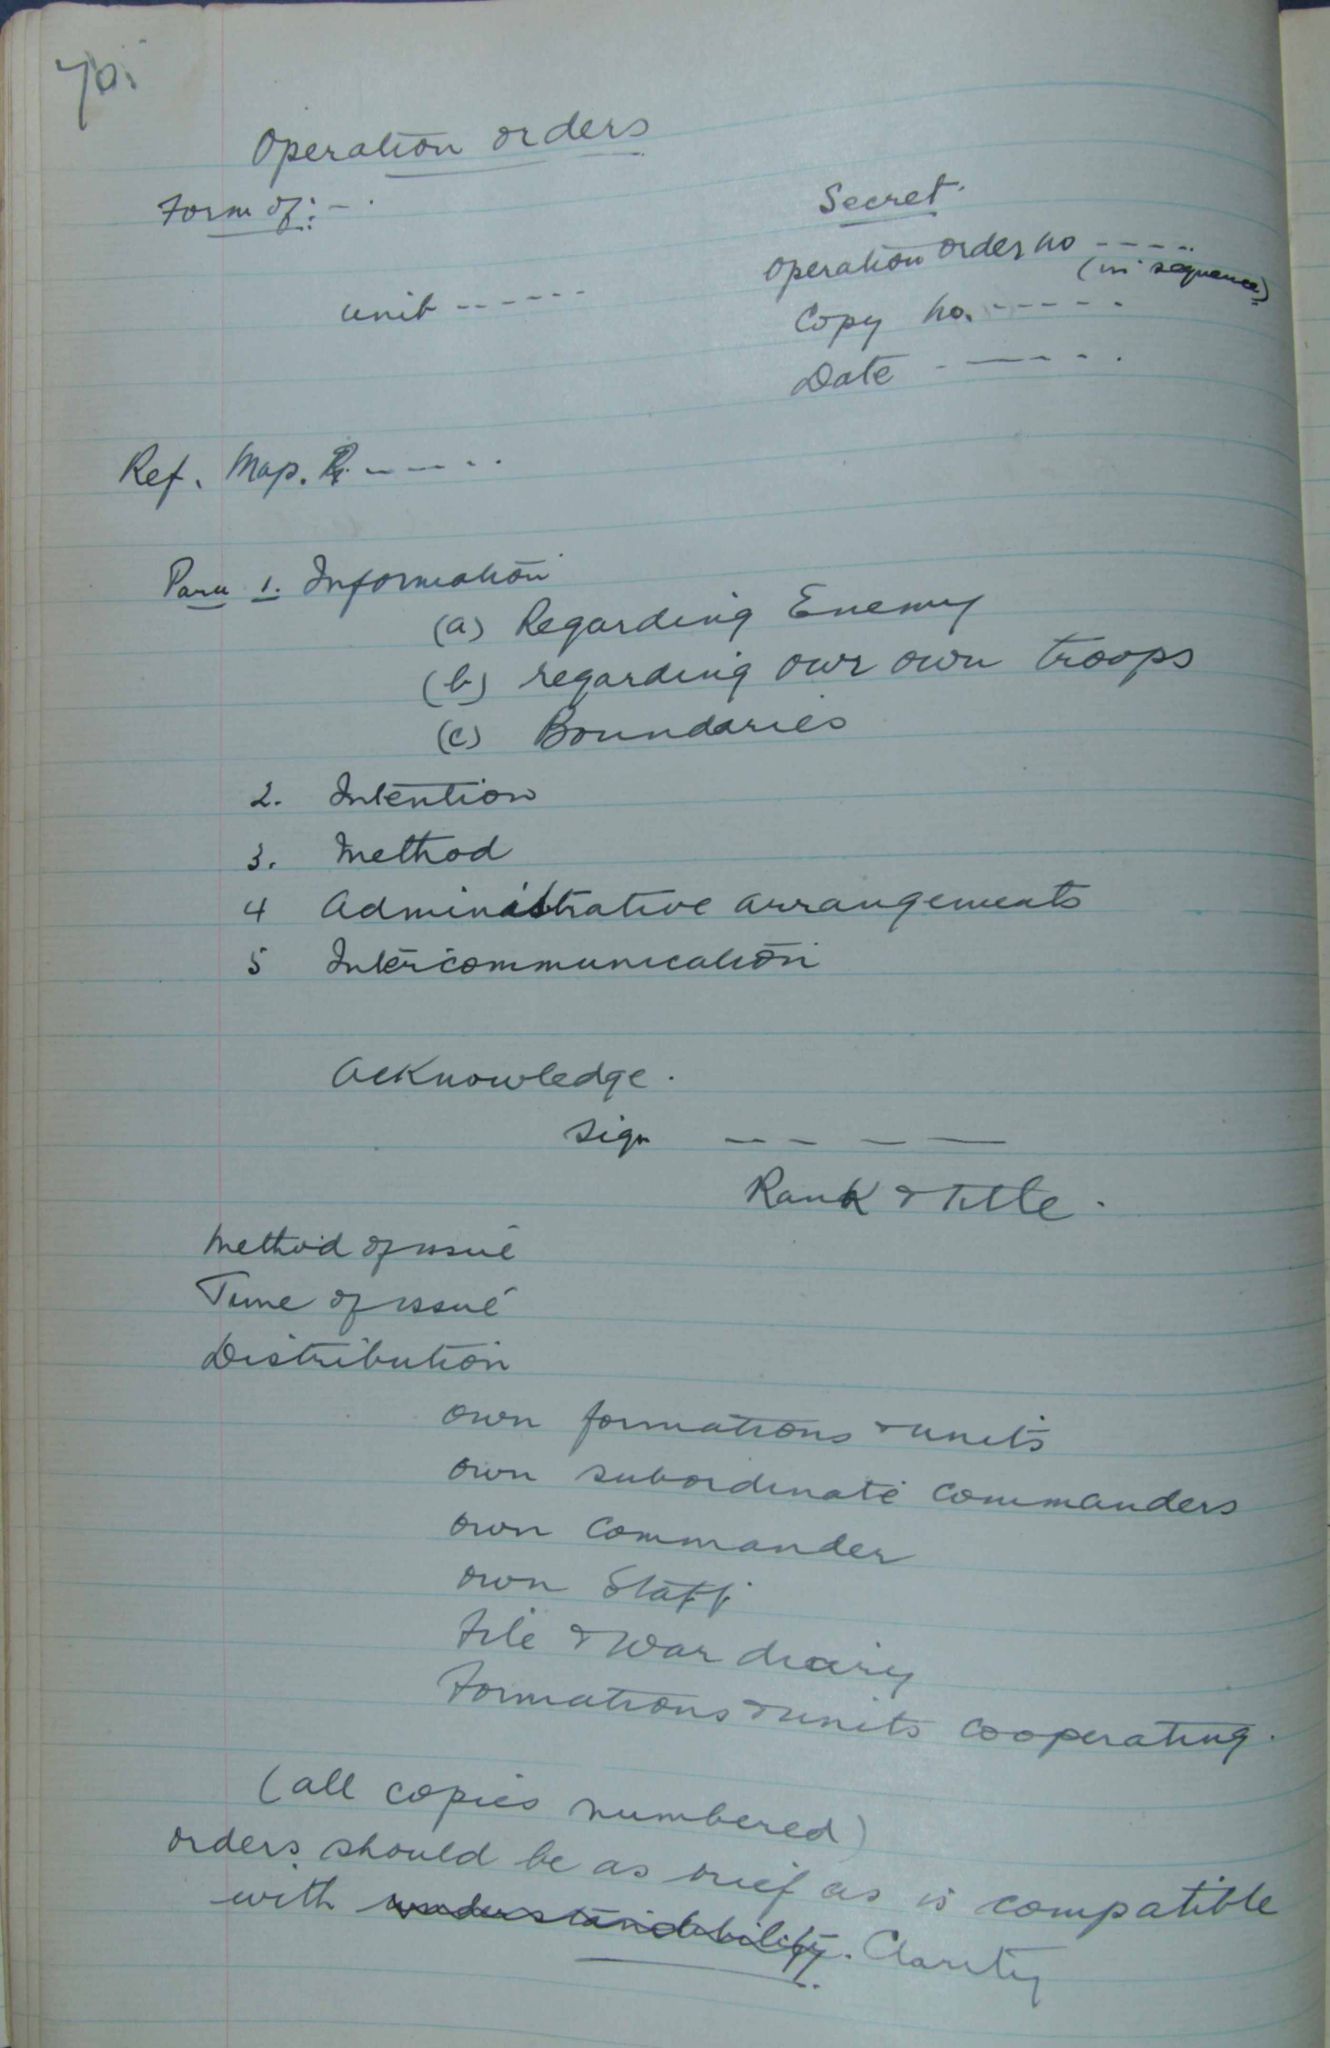 70.
Operation orders
Form of:-.
Secret.
Operation order no -----
(in sequence)
unit ------
Copy No. -----
Date -----
Ref. Map. -----
Para 1. Information
(a) Regarding Enemy
(b) regarding our own troops
(c) Boundaries
2. Intention
3. Method
4 Administrative arrangements
5 Intercommunication
Acknowledge.
Sign -----
Rank & Title.
Method of issue
Time of issue
Distribution
own formations & units
own subordinate commanders
own commander
own Staff.
File & War diary
Formations & units cooperating.
(all copies numbered)
orders should be as brief as is compatible
with understandability. Clarity